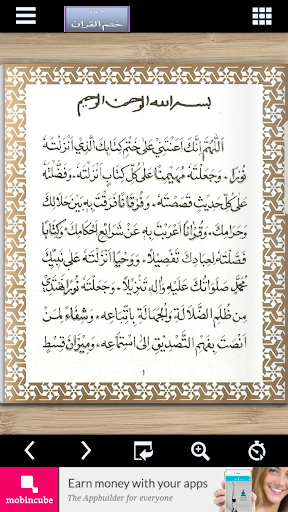 دعاء
ختم القرآن
بسم الله الرحمن الرحيم
اَللّٰهُمَّ اِنَّكَ اَعَنْتَنِيْ عَلٰى خَتْمِ كِتَابِكَ الَّذِيْ اَنْزَلْتَهُ
نُوْرًا. وَجَعَلْتَهُ مُهَيْمِنًا عَلٰى كُلِّ كِتَابٍ اَنْزَلْتَهُ. وَفَضَّلْتَهُ
عَلٰى كُلِّ حَدِيْثٍ قَصَصْتَهُ. وَفُرْقَانًا فَرَقْتَ بِهِ بَيْنَ حَلَالِكَ
وَحَرَامِكَ. وَقُرْاٰنًا اَعْرَبْتَ بِهِ عَنْ شَرَائِعِ اَحْكَامِكَ. وَكِتَابًا
فَصَّلْتَهُ لِعِبَادِكَ تَفْصِيْلًا. وَوَحْيًا اَنْزَلْتَهُ عَلٰى نَبِيِّكَ
مُحَمَّدٍ صَلَوَاتُكَ عَلَيْهِ وَاٰلِهِ تَنْزِيْلًا. وَجَعَلْتَهُ نُوْرًا نَهْتَدِيْ
مِنْ ظُلَمِ الضَّلَالَةِ وَالْجَهَالَةِ بِاتِّبَاعِهِ. وَشِفَاءً لِمَنْ
اَنْصَتَ بِفَهْمِ التَّصْدِيْقِ اِلٰى اسْتِمَاعِهِ. وَمِيْزَانَ قِسْطٍ
١
mobincube
Earn money with your apps
The Appbuilder for everyone